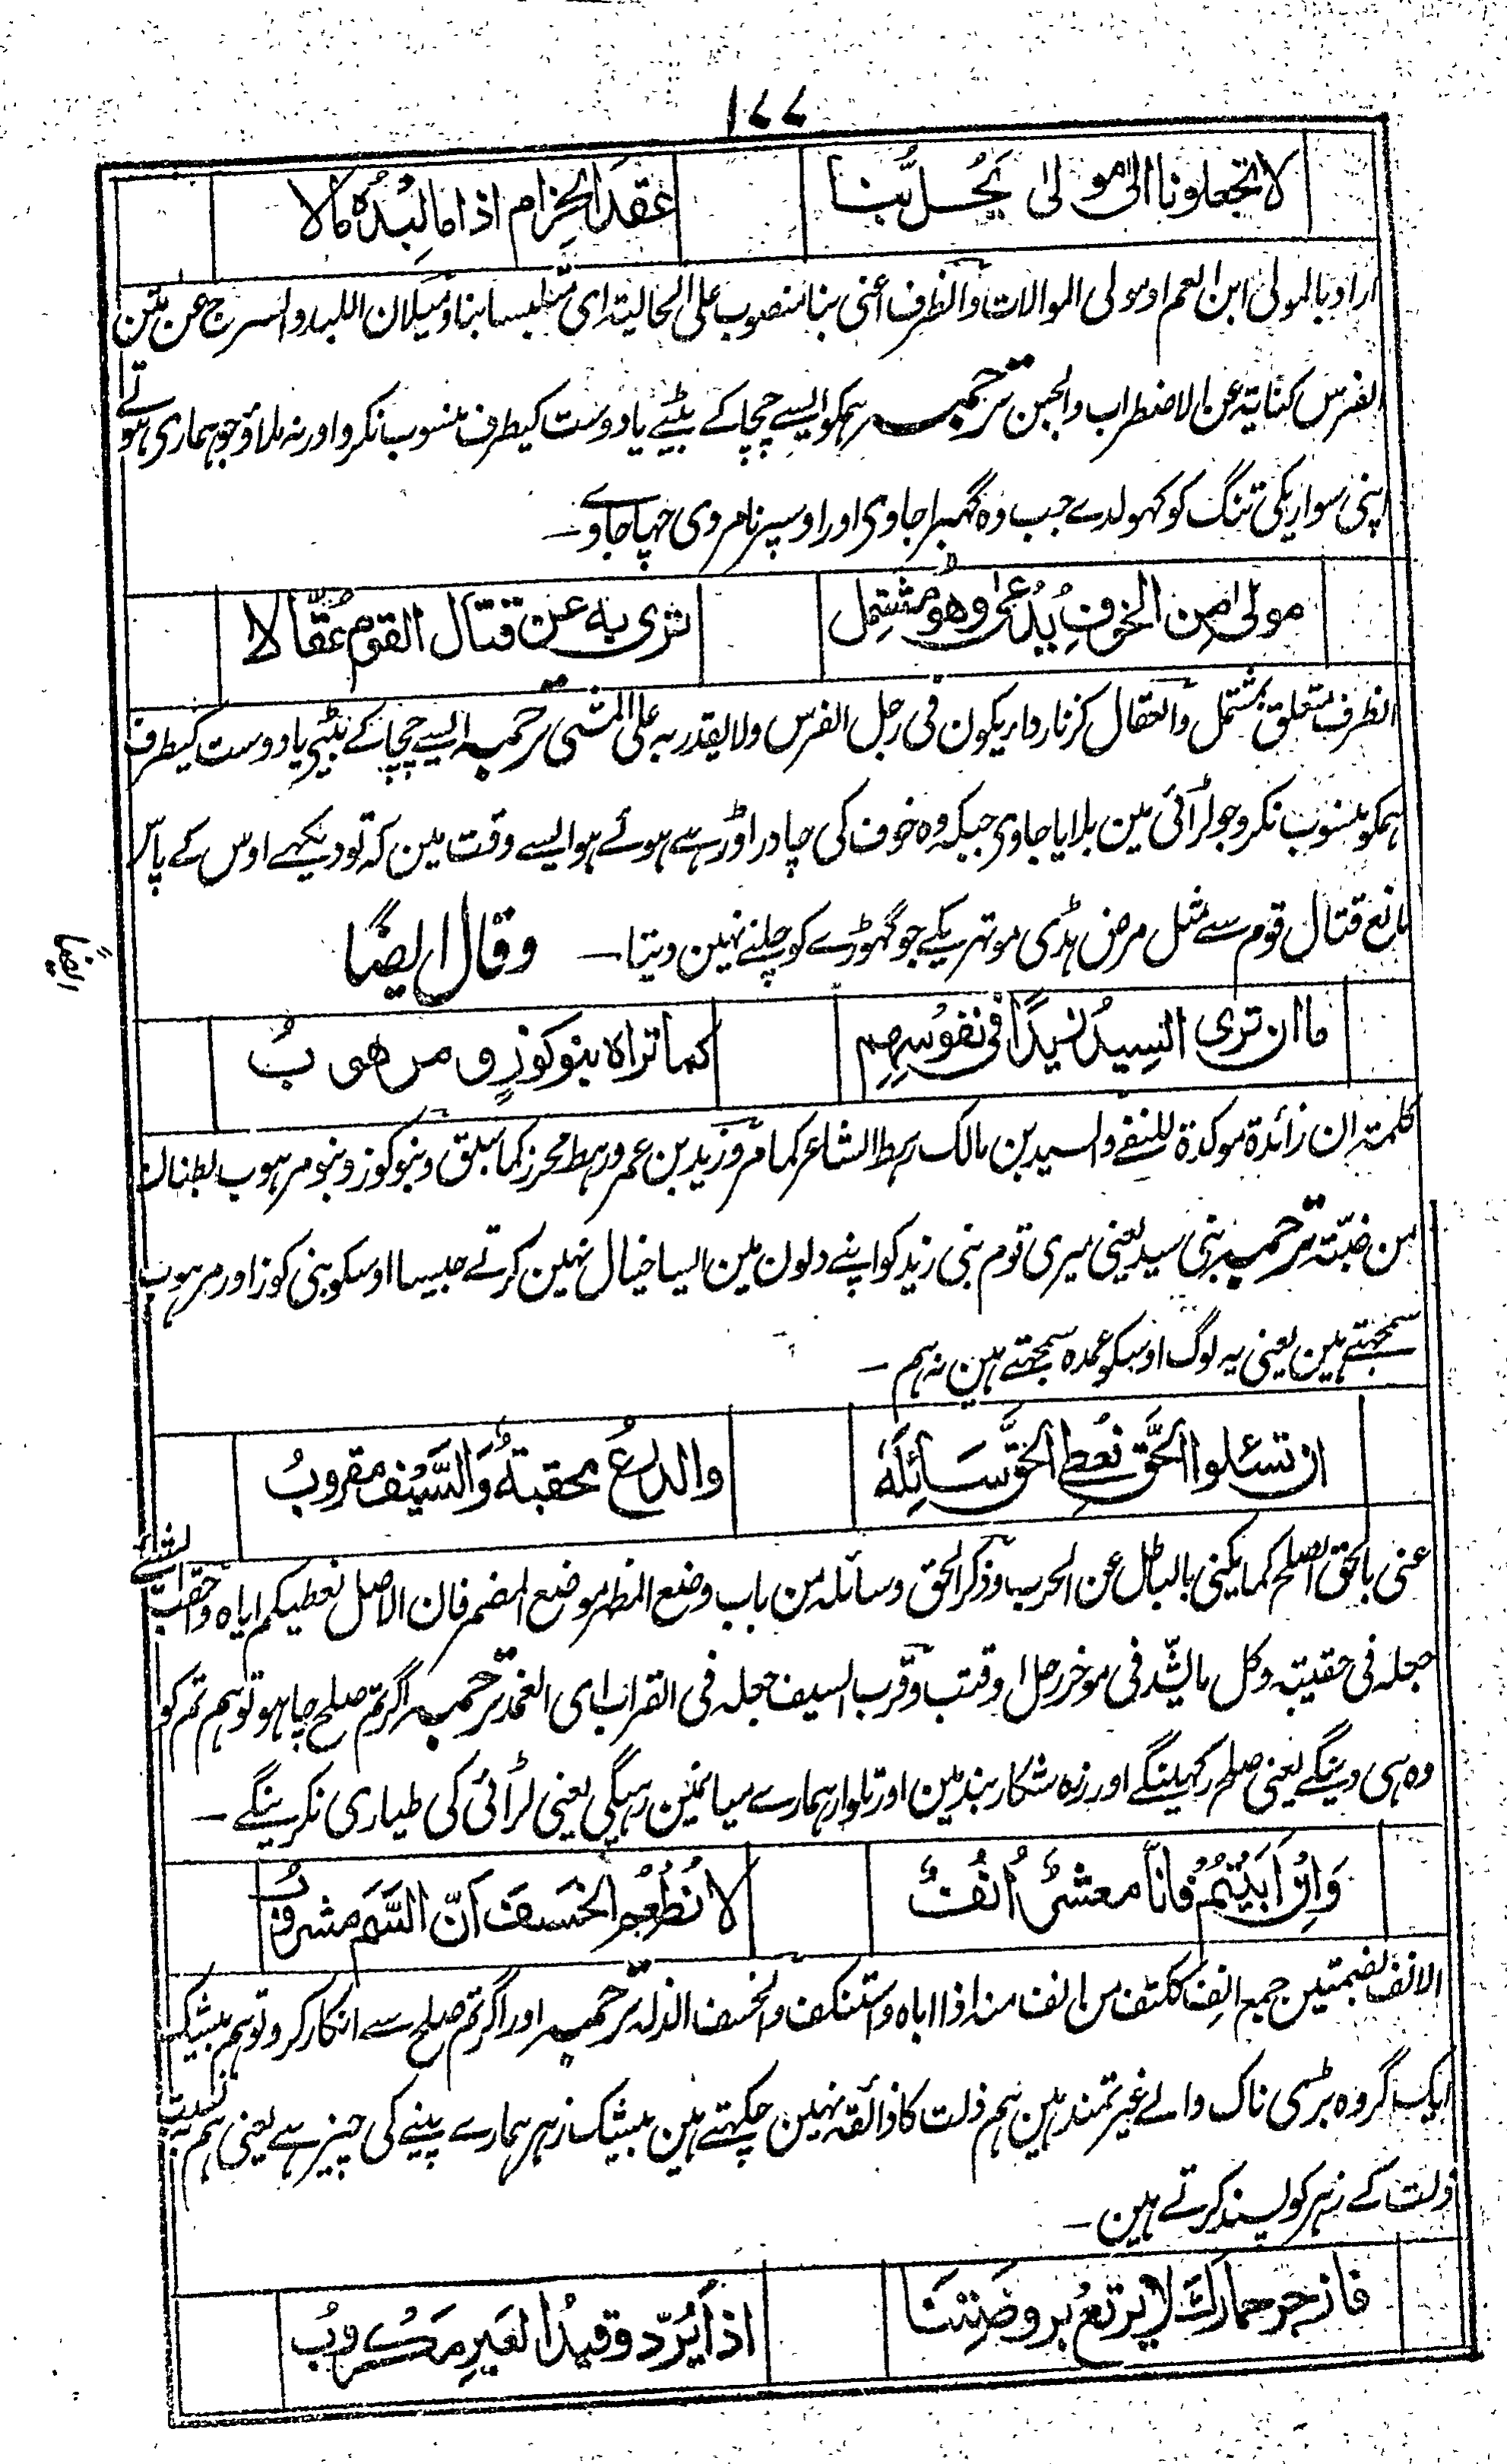 ۱۷۷
لا تجعلونا الی مولی یَحُلُّ بنا عقدَ الحِزام اذا ما لِبْدُه مالا
اراد بالمولی ابن العم او مولی الموالات والظرف اعنی بنا منصوب علی الحالیة ای متلبسا بنا ومیلان اللبد والسرج عن متن
الفرس کنایته عن الاضطراب والجبن ترجمہ ہمکو ایسے چچا کے بیٹے یا دوست کیطرف منسوب نکرو اور نہ ملاؤ جو ہماری ہوتے
اپنی سواریکی تنگ کو کہولدے جب وہ گہبرا جاوی اور اوسپر نامردی چہا جاوے۔
مولیً مِن الخوفِ یُدعیٰ وهُو مشتمِل تری به عن قتال القوم عُقّالا
الظرف متعلق بمشتمل والعقال کزنار داء یکون فی رجل الفرس ولا یقدر به علی المشی ترجمہ ایسے چچا کے بیٹے یا دوست کیطرف
ہمکو منسوب نکرو جو لڑائی مین بلایا جاوی جبکہ وہ خوف کی چادر اوڑہے ہوئے ہو ایسے وقت مین کہ تو دیکہے اوس کے پاس
مانع قتال قوم سے مثل مرض ہڈی موتہریکے جو گہوڑے کو چلنے نہین دیتا۔ وقال ایضًا
ایضًا
ما ان تری السِیدُ زیدًا فی نفوسِهِم کما تراه بنو کوزٍ و مرهوبُ
کلمته ان زائدة موکدة للنفے والسید بن مالک رہط الشاعر کما مر وزید بن عمرو رہط محرز کما سبق وبنو کوز وبنو مرہوب بطنان
من ضبّتہ ترجمہ بنی سید یعنی میری قوم بنی زید کو اپنے دلون مین ایسا خیال نہین کرتے جیسا اوسکو بنی کوز اور مرہوب
سمجہتے ہین یعنی یہ لوگ اوسکو عمدہ سمجہتے ہین نہ ہم۔
ان تسئلوا الحَقَّ نُعطِ الحَقَّ سَائِلَهٗ والدرعُ محقبةٌ وَالسَّیْف مقروبُ
عنی بالحق الصلح کما یکنی بالباطل عن الحرب وذکر الحق وسائله من باب وضع المظہر موضع المضمر فان الاصل نعطیکم ایاہ واحقب الشئے
جعله فی حقیبتہ وکل ما یشد فی موخر رحل او قتب وقرب السیف جعله فی القراب ای الغمد ترجمہ اگر تم صلح چاہو تو ہم تم کو
وہ ہی دینگے یعنی صلح رکہینگے اور زرہ شکار بند مین اور تلوار ہمارے میانمین رہیگی یعنی لڑائی کی طیاری نکرینگے۔
وَاِن اَبَیْتُمْ فانّا معشرٌ اُنُفٌ لا نُطْعَمُ الخَسفَ اَنّ السَّمَ مشروبُ
الانف بضمتین جمع انِف ککتف من انف منه اذا اباہ واستنکف والخسف الذلہ ترجمہ اور اگر تم صلح سے انکار کرو تو ہم بیشک
ایک گروہ بڑی ناک والے غیرتمند ہین ہم ذلت کا ذائقہ نہین چکہتے ہین بیشک زہر ہمارے پینے کی چیز ہے یعنی ہم بہ نسبت
ذلت کے زہر کو پسند کرتے ہین۔
فازجر حمارك لا یرتعُ بروضَتِنَا اذاً یُرَدّ وقیدُ العَیرِ مَکروبُ